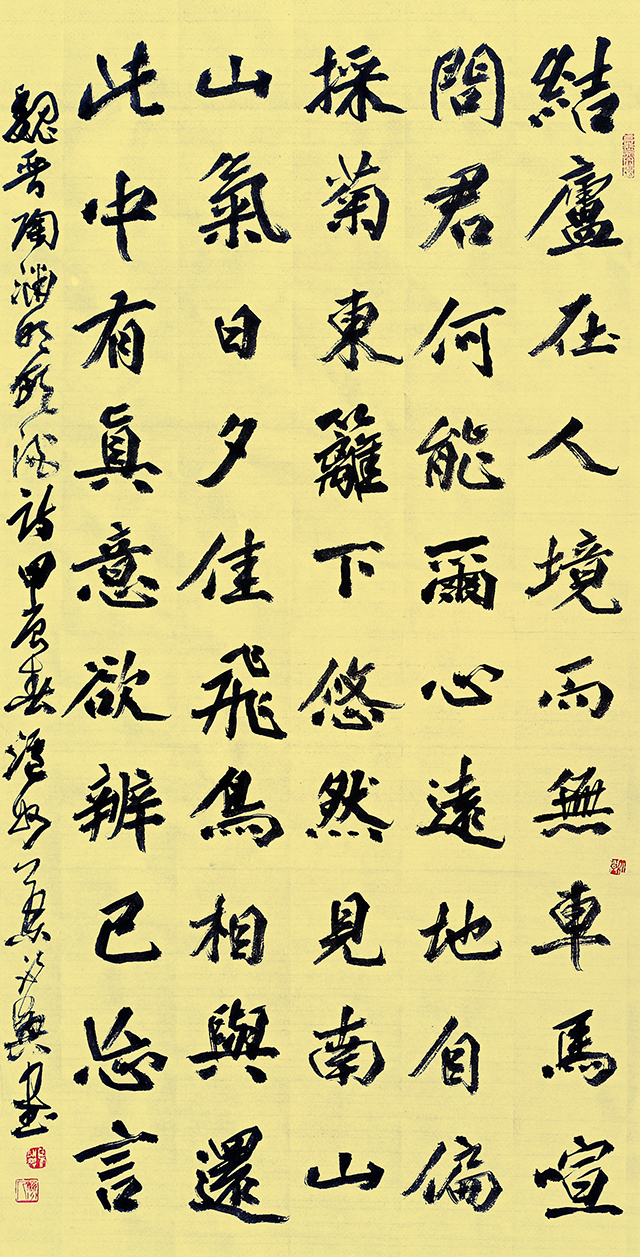 結廬在人境而無車馬喧
問君何能爾心遠地自偏
採菊東籬下悠然見南山
山氣日夕佳飛鳥相與還
此中有真意欲辨已忘言
魏晉陶淵明飲酒詩甲寅春瀘州書